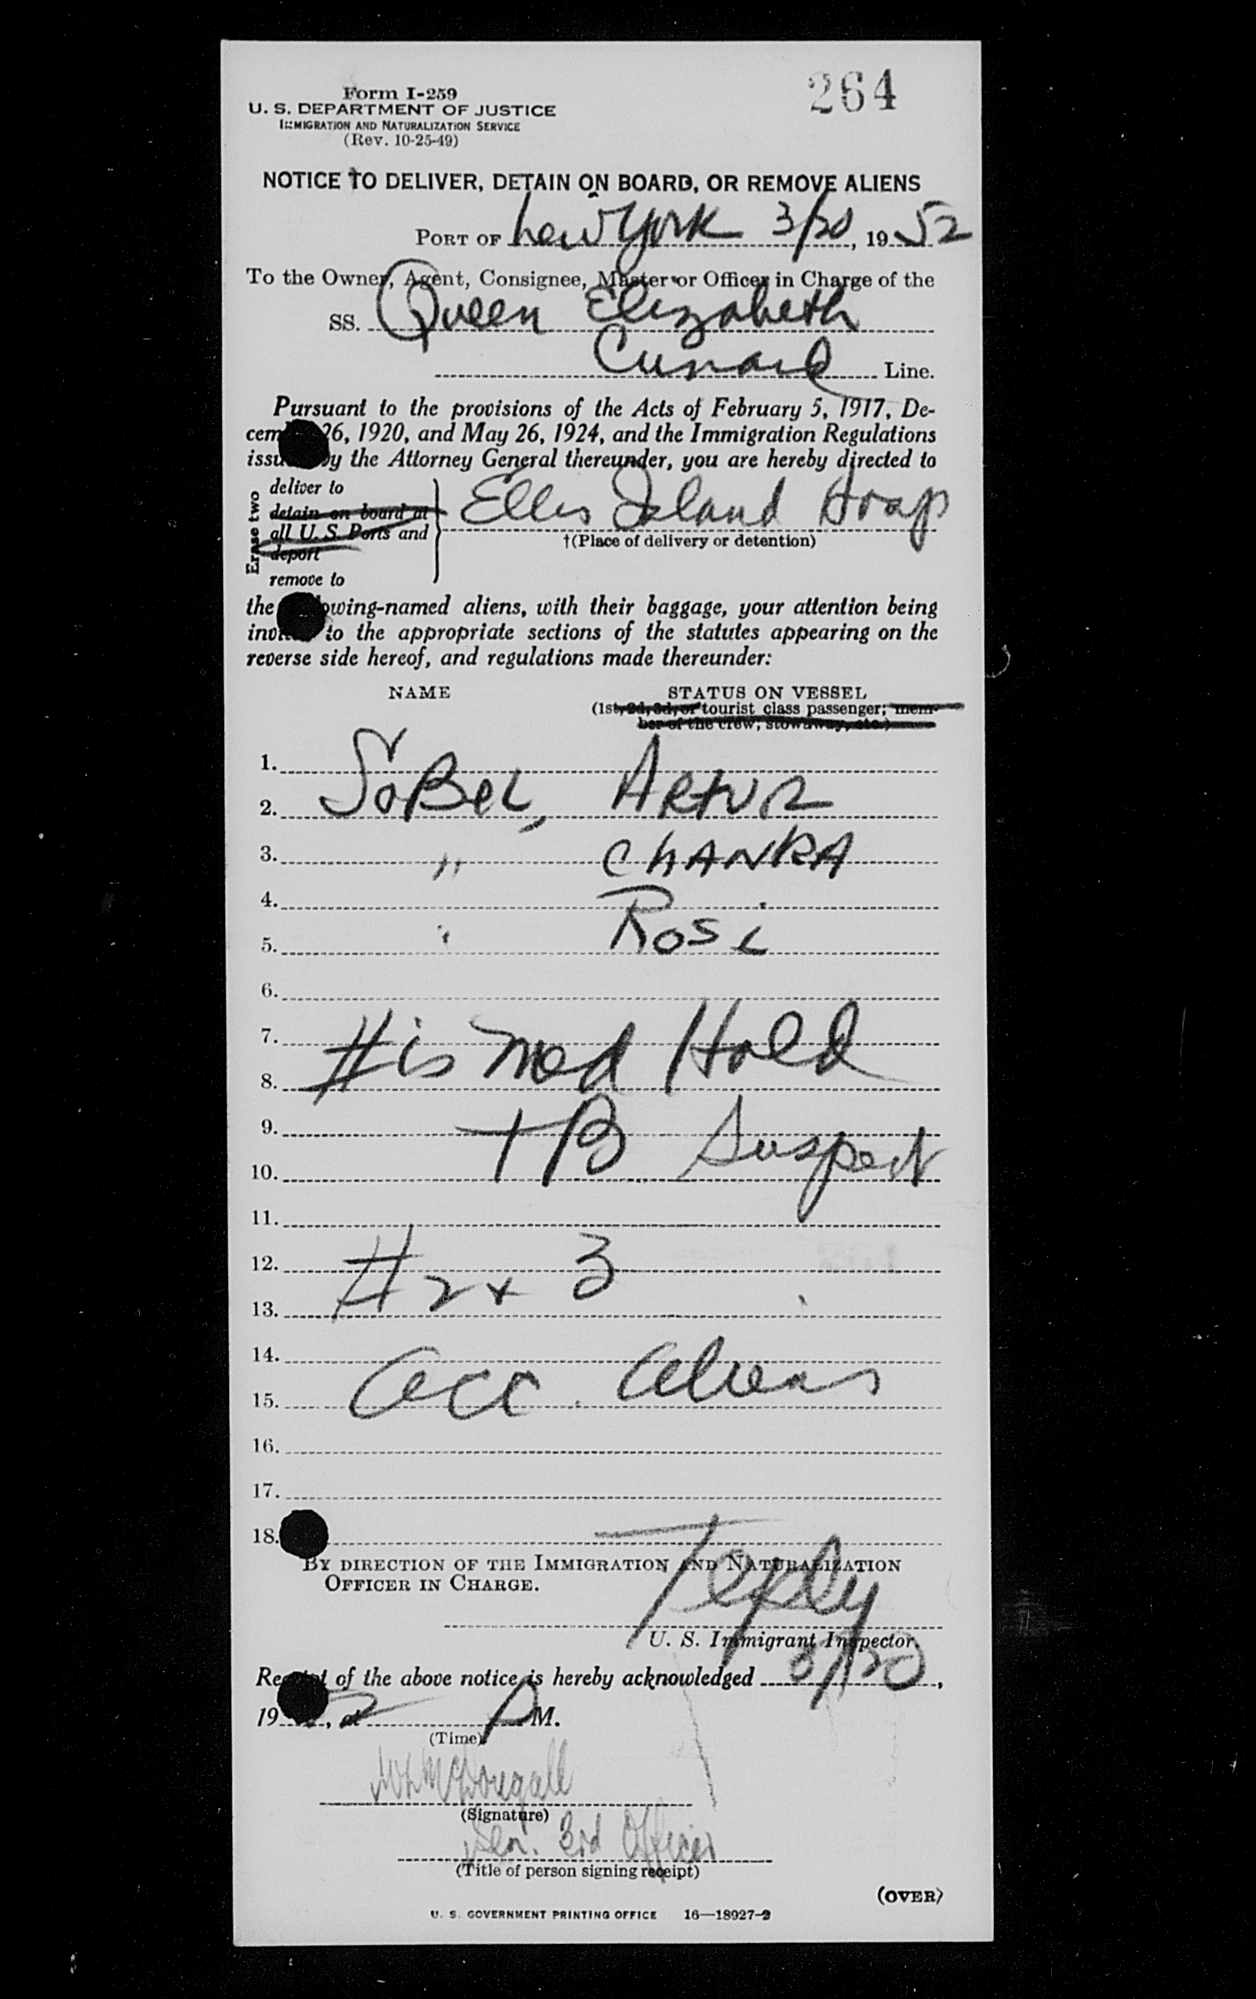 264
Form I-259
U. S. DEPARTMENT OF JUSTICE
IMMIGRATION AND NATURALIZATION SERVICE
(Rev. 10-25-49)
NOTICE TO DELIVER, DETAIN ON BOARD, OR REMOVE ALIENS
PORT OF New York 3/20, 1952
To the Owner, Agent, Consignee, Master or Officer in Charge of the
SS. Queen Elizabeth
Cunard Line.
Pursuant to the provisions of the Acts of February 5, 1917, De-
cem 26, 1920, and May 26, 1924, and the Immigration Regulations
issu by the Attorney General thereunder, you are hereby directed to
Erase two
deliver to
detain on board at
all U. S. Ports and
deport
remove to
Ellis Island Hosp
†(Place of delivery or detention)
the owing-named aliens, with their baggage, your attention being
inv to the appropriate sections of the statutes appearing on the
reverse side hereof, and regulations made thereunder:
NAME STATUS ON VESSEL
(1st, 2d, 3d, or tourist class passenger; mem-
ber of the crew, stowaway, etc.)
1.
2. SoBeL, ARtUR
3. " CHANKA
4.
5. " Rosi
6.
7.
8. #is Med Hold
9.
10. TB Suspect
11.
12.
13. #2 + 3
14.
15. acc. aliens
16.
17.
18.
BY DIRECTION OF THE IMMIGRATION AND NATURALIZATION
OFFICER IN CHARGE.
U. S. Immigrant Inspector.
Receipt of the above notice is hereby acknowledged 3/20,
19 2, at P M.
(Time)
McDougall
(Signature)
Sen. 3rd Officer
(Title of person signing receipt)
(OVER)
U. S. GOVERNMENT PRINTING OFFICE 16—18927-2